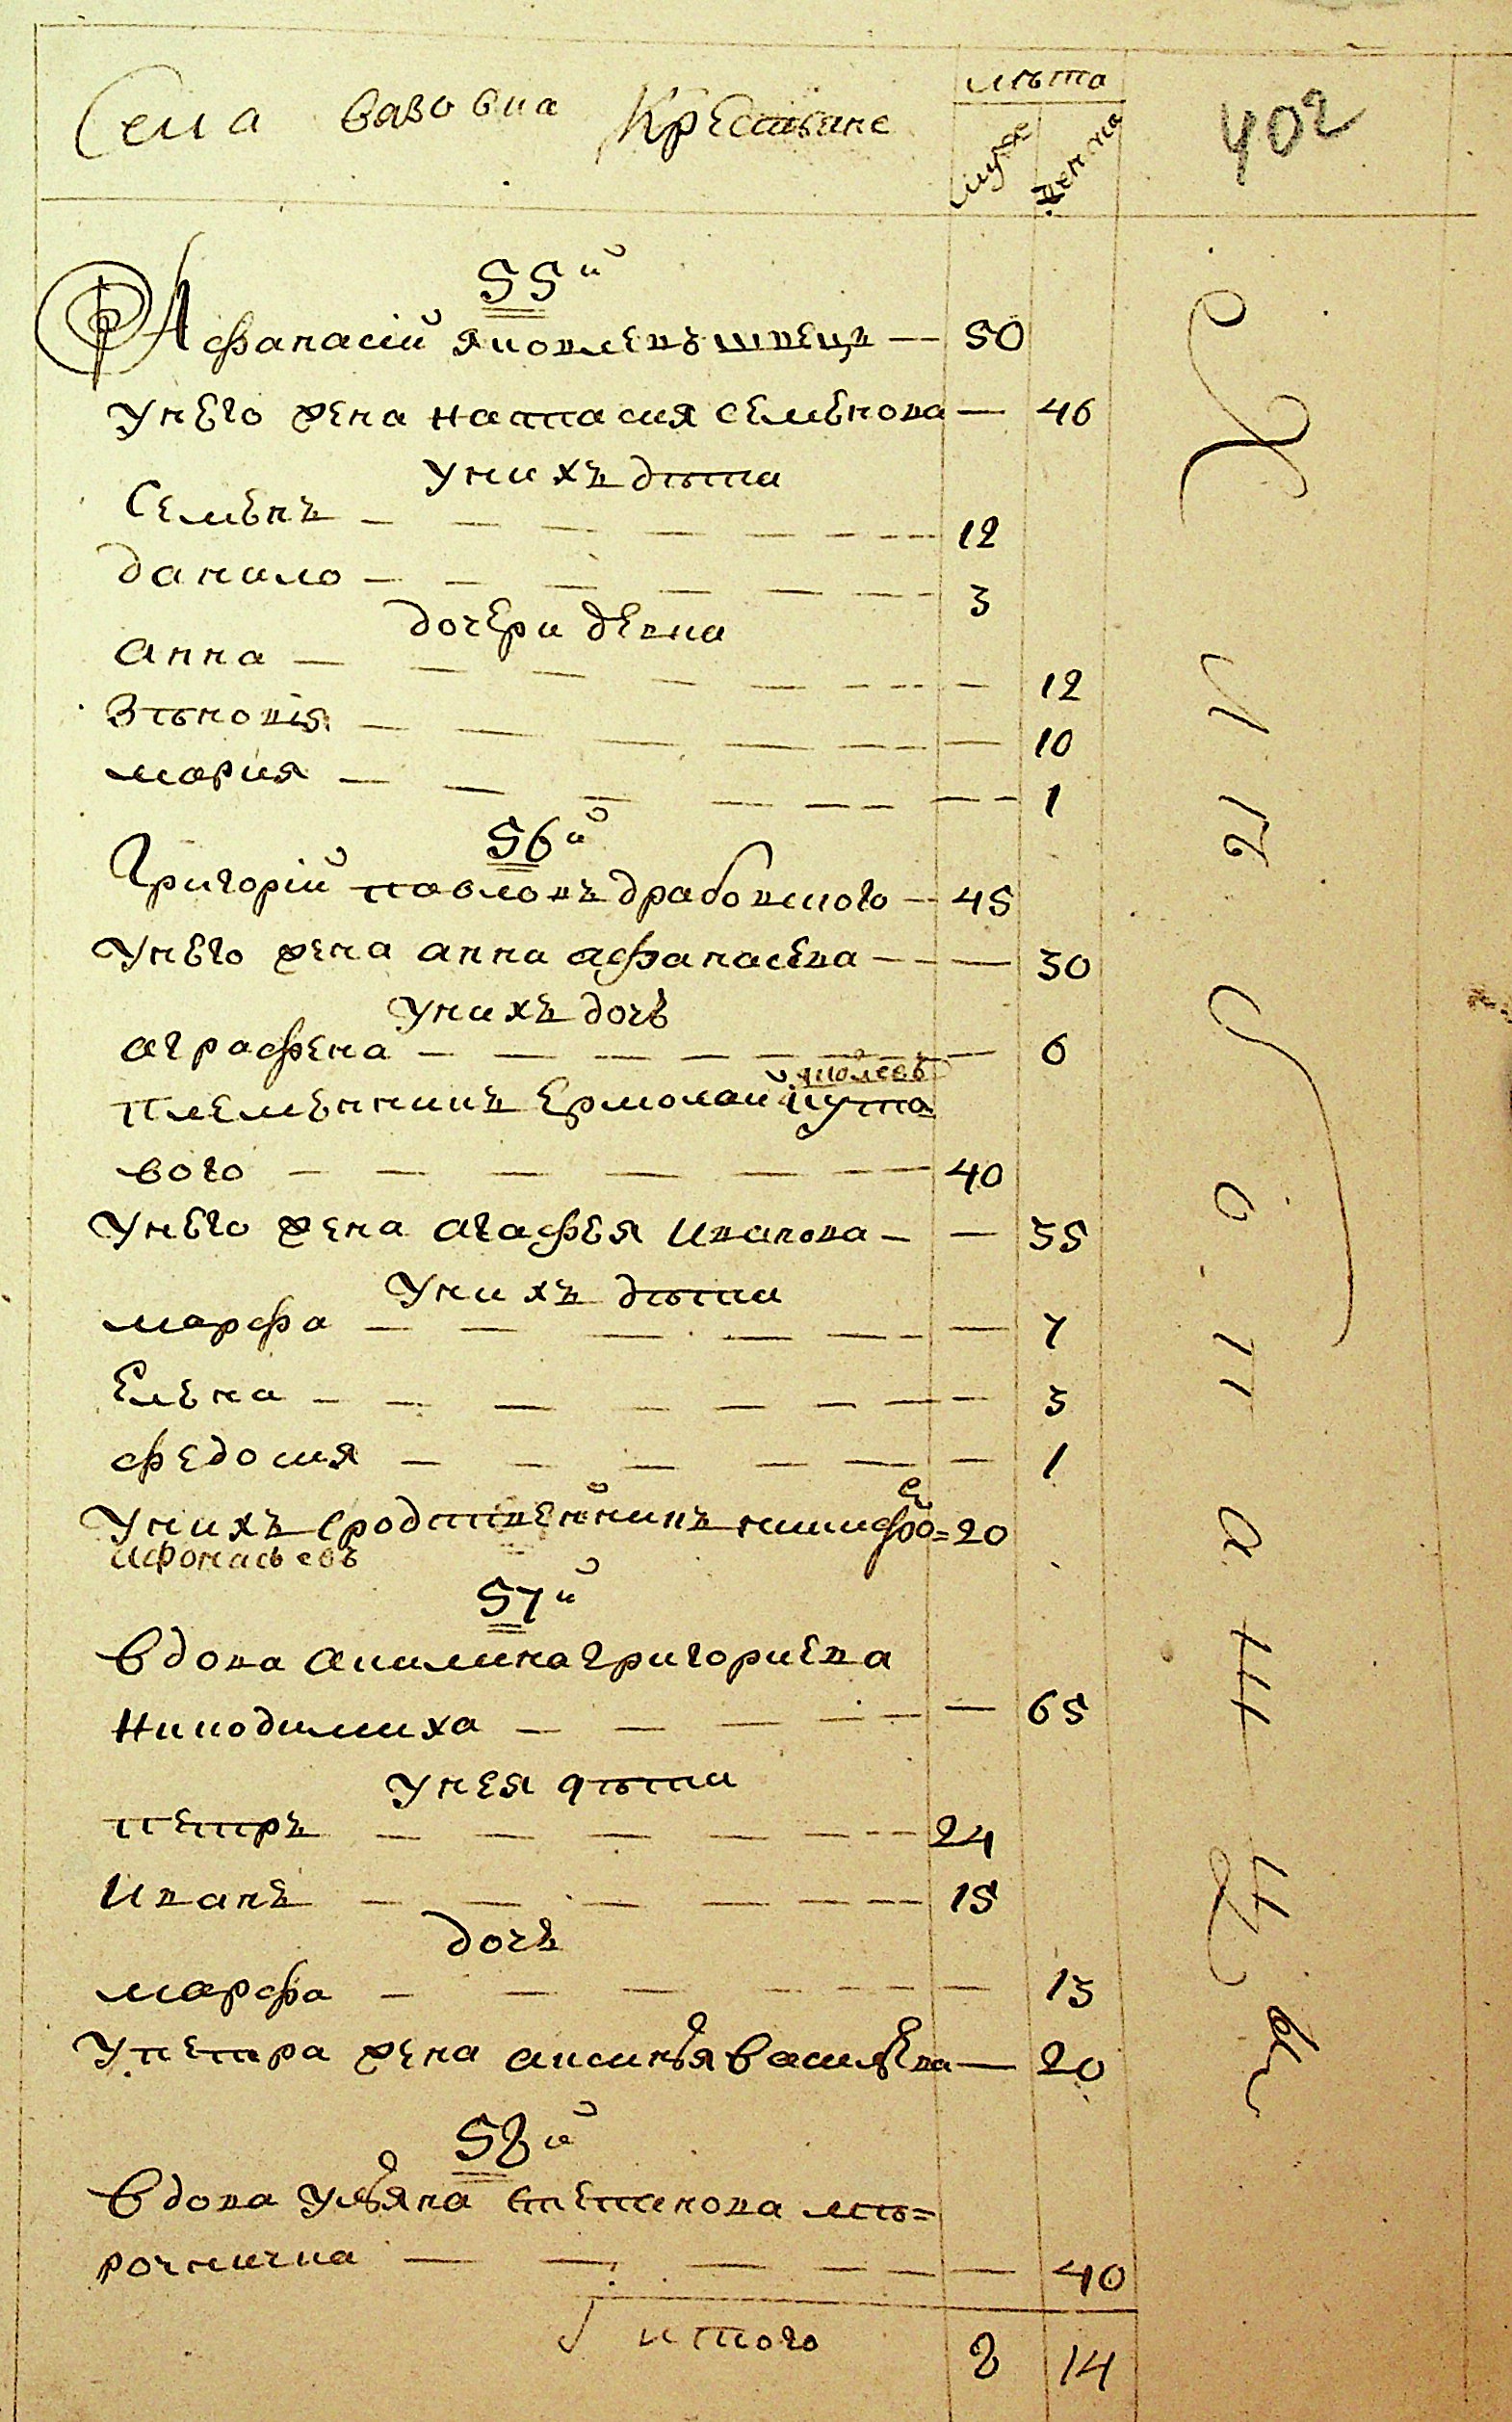 Села вазовка Крестьяне
лѣта
муже
женска
402
55й
Афанасий яковлевъ швецъ — 50
Унего жена настасия семенова — 46
Унихъ дѣти
Семенъ — 12
данило — 3
дочери девки
анна — 12
Зѣновия — 10
мария — 1
56й
Григорий павловъ драбовского — 45
Унего жена анна афанасева — 30
Унихъ дочь
аграфена — 6
яковлевъ
племенникъ Ермолай кута
вого — 40
Унего жена агафея иванова — 35
Унихъ дѣти
марфа — 7
Елена — 3
федосия — 1
Унихъ сродственникъ 20
афонасьевъ
57й
вдова акилина григориева
никодимиха — 65
Унея дѣти
петръ — 24
иванъ — 15
дочь
марфа — 13
Упетра жена аксинья васильева — 20
58й
вдова ульяна степанова мѣ=
рочничка — 40
итого 8 14